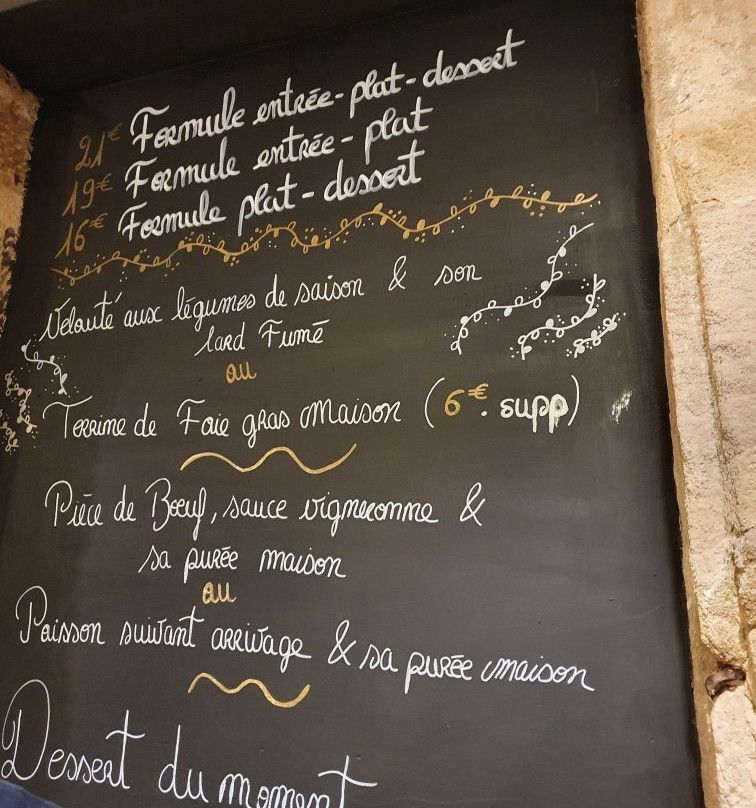 21€ Formule entrée-plat-dessert
19€ Formule entrée-plat
16€ Formule plat-dessert
Velouté aux légumes de saison & son
lard Fumé
ou
Terrine de Foie gras maison (6€. supp)
Pièce de Boeuf, sauce vigneronne &
sa purée maison
ou
Poisson suivant arrivage & sa purée maison
Dessert du moment